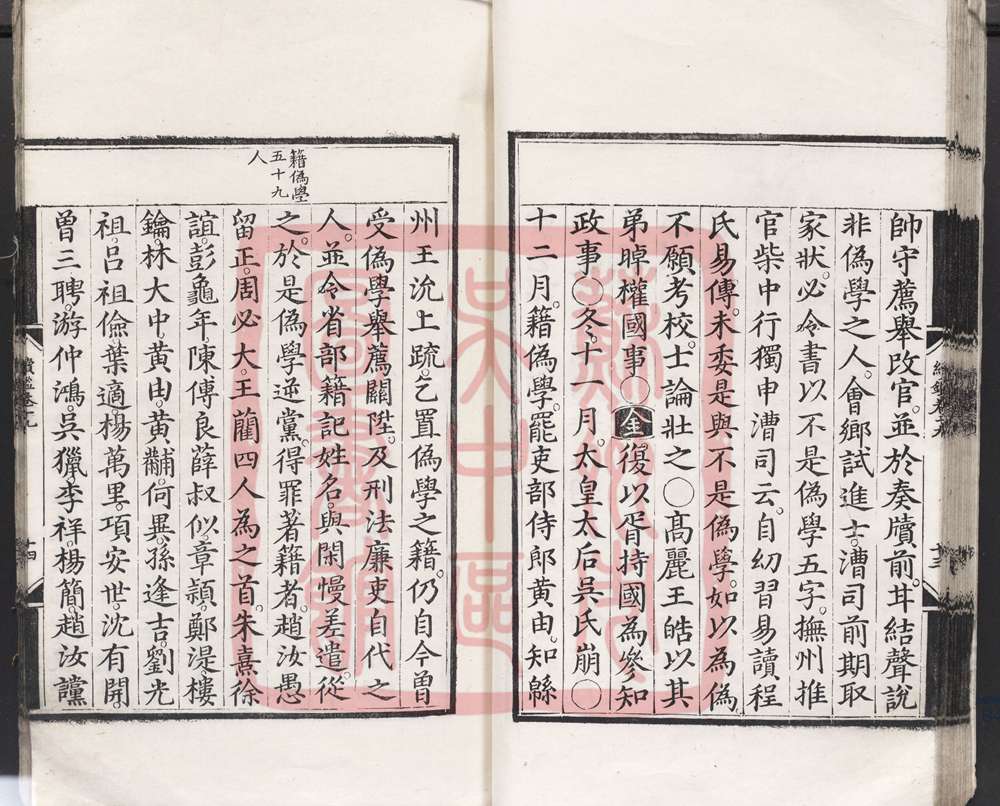 帥守薦舉改官。並於奏牘前。甘結聲說
非偽學之人。會鄉試進士。漕司前期取
家狀。必令書以不是偽學五字。撫州推
官柴中行獨申漕司云。自幼習易讀程
氏易傳。未委是與不是偽學。如以為偽
不願考校。士論壯之○高麗王皓以其
弟晫權國事○金。復以胥持國為參知
政事○冬。十一月。太皇太后吳氏崩○
十二月。籍偽學。罷吏部侍郎黃由。知緜
籍偽學
五十九
人
州王沇上疏。乞置偽學之籍。仍自今曾
受偽學舉薦關陞。及刑法廉吏自代之
人。並令省部籍記姓名。與閑慢差遣。從
之。於是偽學逆黨。得罪著籍者。趙汝愚
留正。周必大。王藺四人為之首。朱熹徐
誼。彭龜年。陳傅良薛叔似。章頴。鄭湜樓
鑰。林大中。黃由。黃黼。何異。孫逢吉。劉光
祖。呂祖儉葉適。楊萬里。項安世。沈有開。
曾三聘。游仲鴻。吳獵。李祥。楊簡。趙汝讜